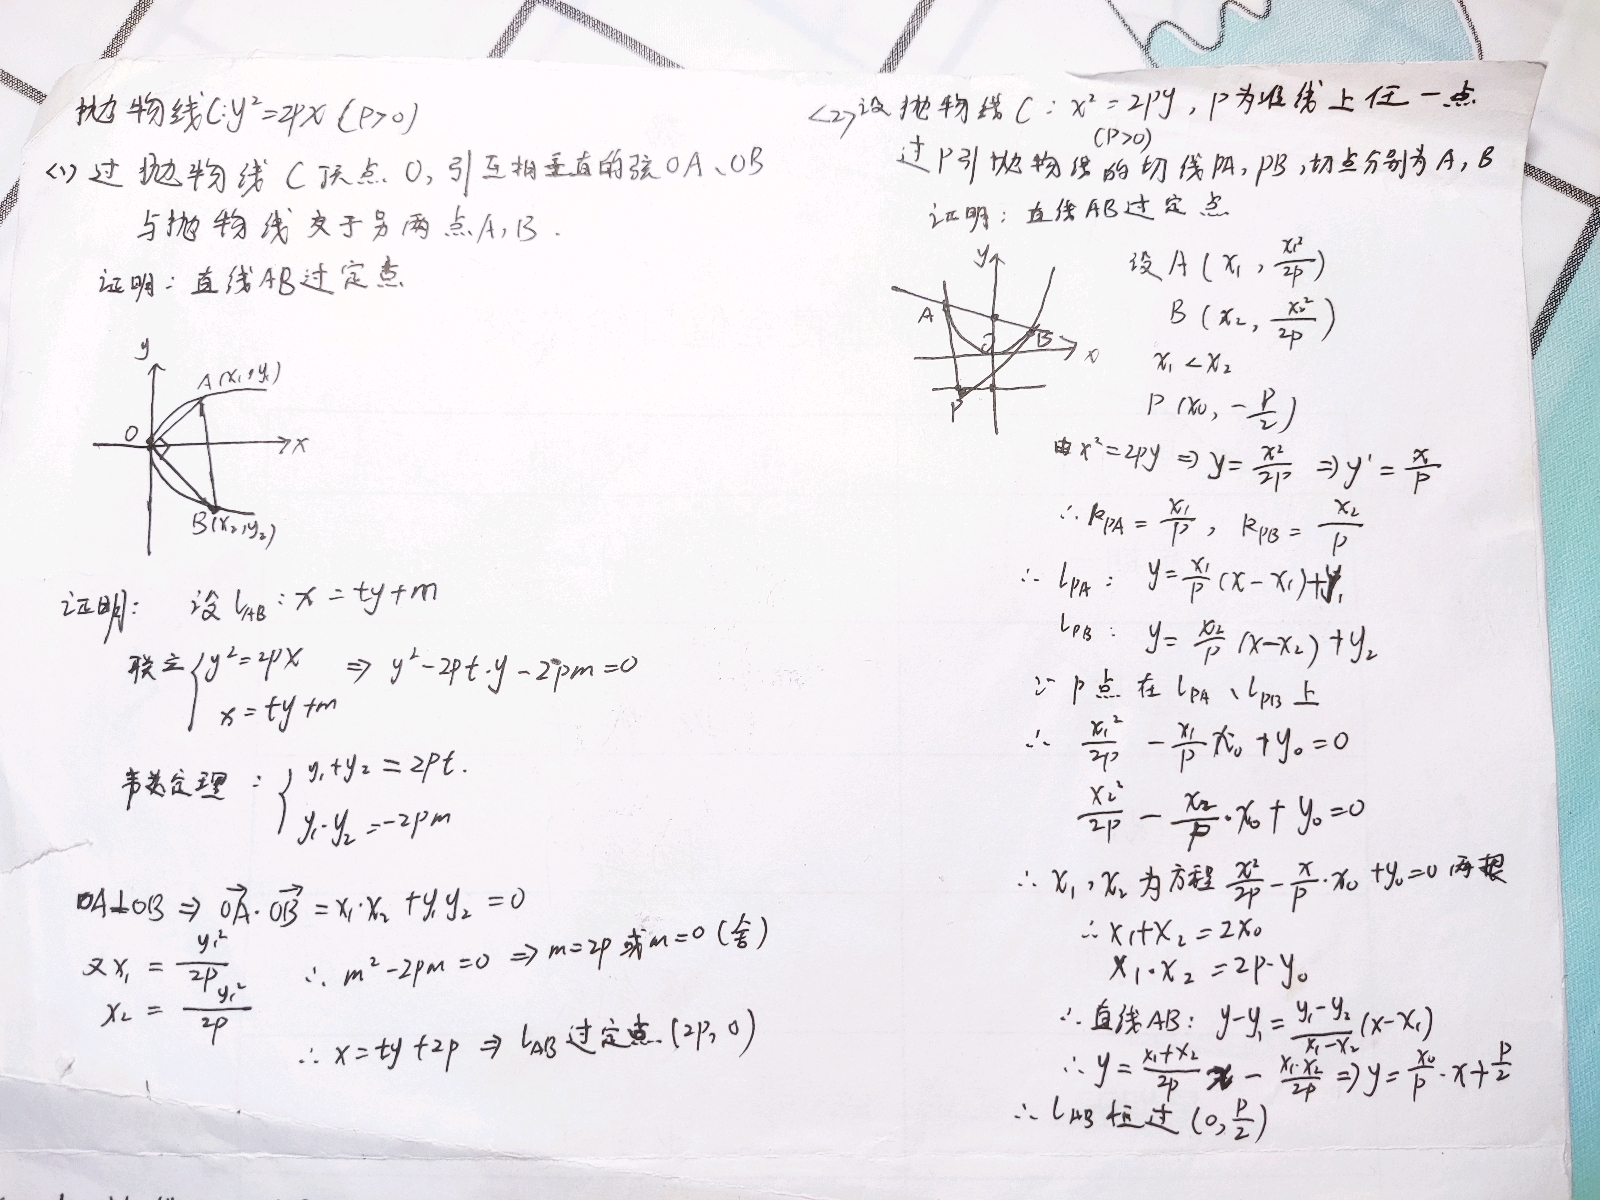 抛物线C:y²=2px (p>0)
<1>过抛物线C顶点O,引互相垂直的弦OA、OB
与抛物线交于另两点A,B.
证明:直线AB过定点
y
A(x₁,y₁)
O
x
B(x₂,y₂)
证明: 设l_AB:x=ty+m
联立{y²=2px ⇒ y²-2pt·y-2pm=0
x=ty+m
韦达定理:{y₁+y₂=2pt.
y₁·y₂=-2pm
OA⊥OB ⇒ \vec{OA}·\vec{OB}=x₁·x₂+y₁y₂=0
又x₁=\frac{y₁²}{2p} ∴ m²-2pm=0 ⇒ m=2p或m=0(舍)
x₂=\frac{y₁²}{2p}
∴ x=ty+2p ⇒ l_AB过定点(2p,0)
<2>设抛物线C:x²=2py,P为准线上任一点
(P>0)
过P引抛物线的切线PA,PB,切点分别为A,B
证明:直线AB过定点
y
A
B
O
x
P
设A(x₁,\frac{x₁²}{2p})
B(x₂,\frac{x₂²}{2p})
x₁<x₂
P(x₀,-\frac{p}{2})
由x²=2py ⇒ y=\frac{x²}{2p} ⇒ y'=\frac{x}{p}
∴ k_PA=\frac{x₁}{p}, k_PB=\frac{x₂}{p}
∴ l_PA: y=\frac{x₁}{p}(x-x₁)+y₁
l_PB: y=\frac{x₂}{p}(x-x₂)+y₂
∵ P点在l_PA、l_PB上
∴ \frac{x₁²}{2p}-\frac{x₁}{p}x₀+y₀=0
\frac{x₂²}{2p}-\frac{x₂}{p}·x₀+y₀=0
∴ x₁,x₂为方程\frac{x²}{2p}-\frac{x}{p}·x₀+y₀=0两根
∴ x₁+x₂=2x₀
x₁·x₂=2p·y₀
∴ 直线AB: y-y₁=\frac{y₁-y₂}{x₁-x₂}(x-x₁)
∴ y=\frac{x₁+x₂}{2p}x-\frac{x₁·x₂}{2p} ⇒ y=\frac{x₀}{p}·x+\frac{p}{2}
∴ l_AB恒过(0,\frac{p}{2})